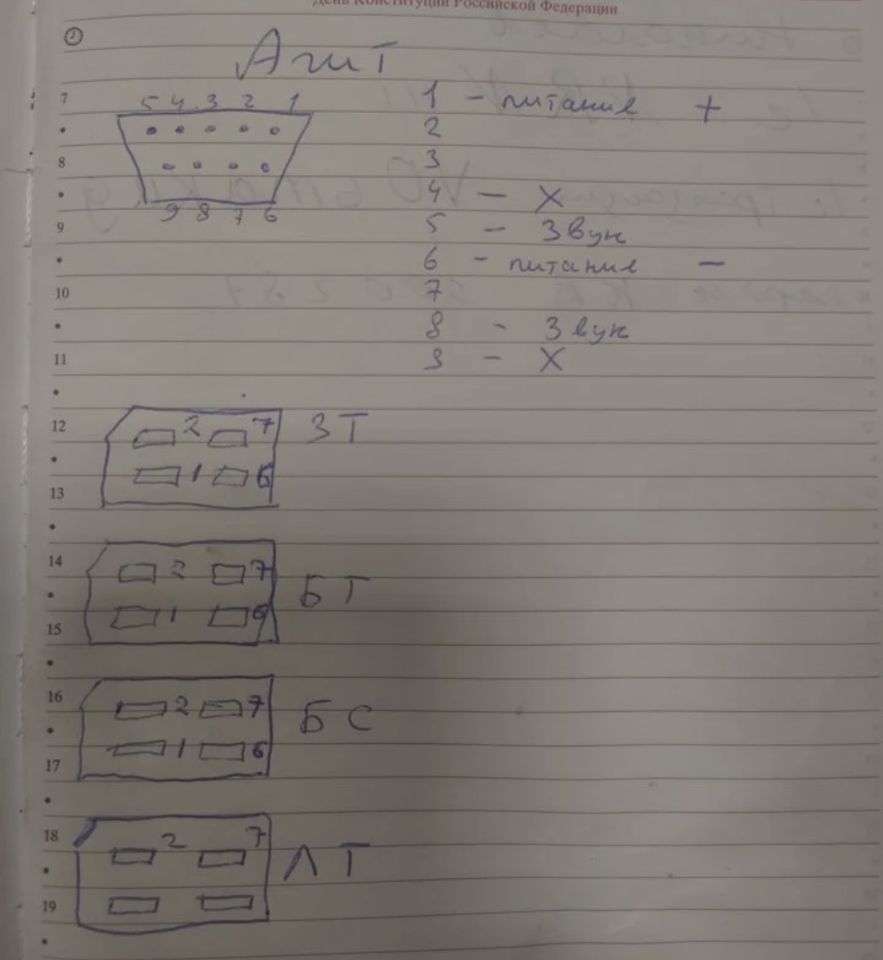 День Конституции Российской Федерации
Агит
5 4 3 2 1
9 8 7 6
1 - питание +
2
3
4 - X
5 - Звук
6 - питание -
7
8 - Звук
9 - X
7
8
9
10
11
12
13
14
15
16
17
18
19
2 7 ЗТ
1 6
2 7 БТ
1 6
2 7 БС
1 6
2 7 ЛТ